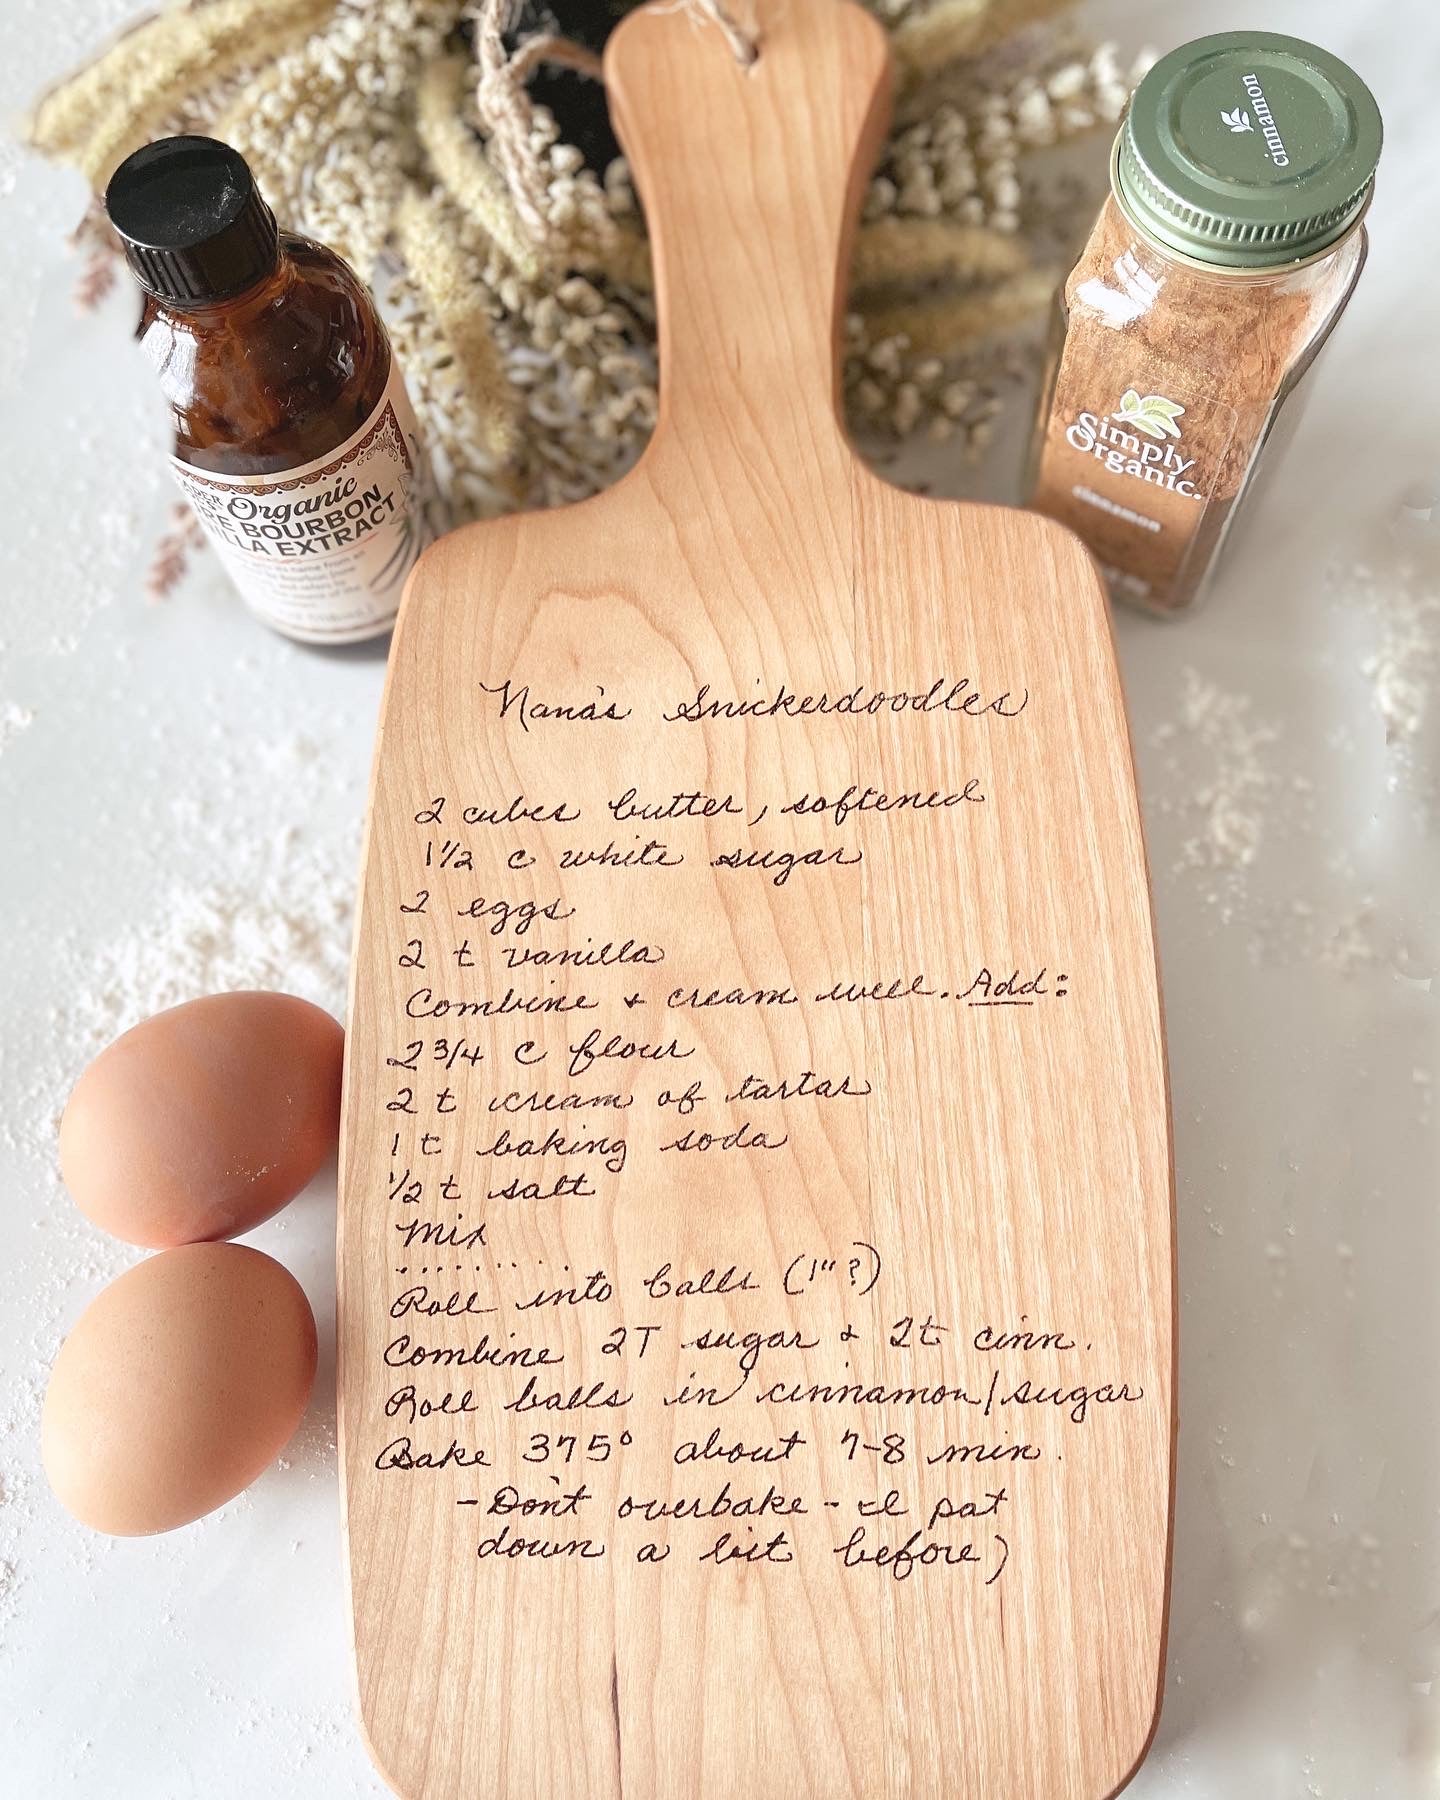 cinnamon
Simply
Organic.
cinnamon
Organic
BOURBON
EXTRACT
Nana's Snickerdoodles
2 cubes butter, softened
1 1/2 c white sugar
2 eggs
2 t vanilla
Combine + cream well. Add:
2 3/4 c flour
2 t cream of tartar
1 t baking soda
1/2 t salt
Mix
. . . . . . . . .
Roll into balls (1" ?)
Combine 2T sugar + 2t cinn.
Roll balls in cinnamon/sugar
Bake 375° about 7-8 min.
- Don't overbake - I pat
down a bit before)